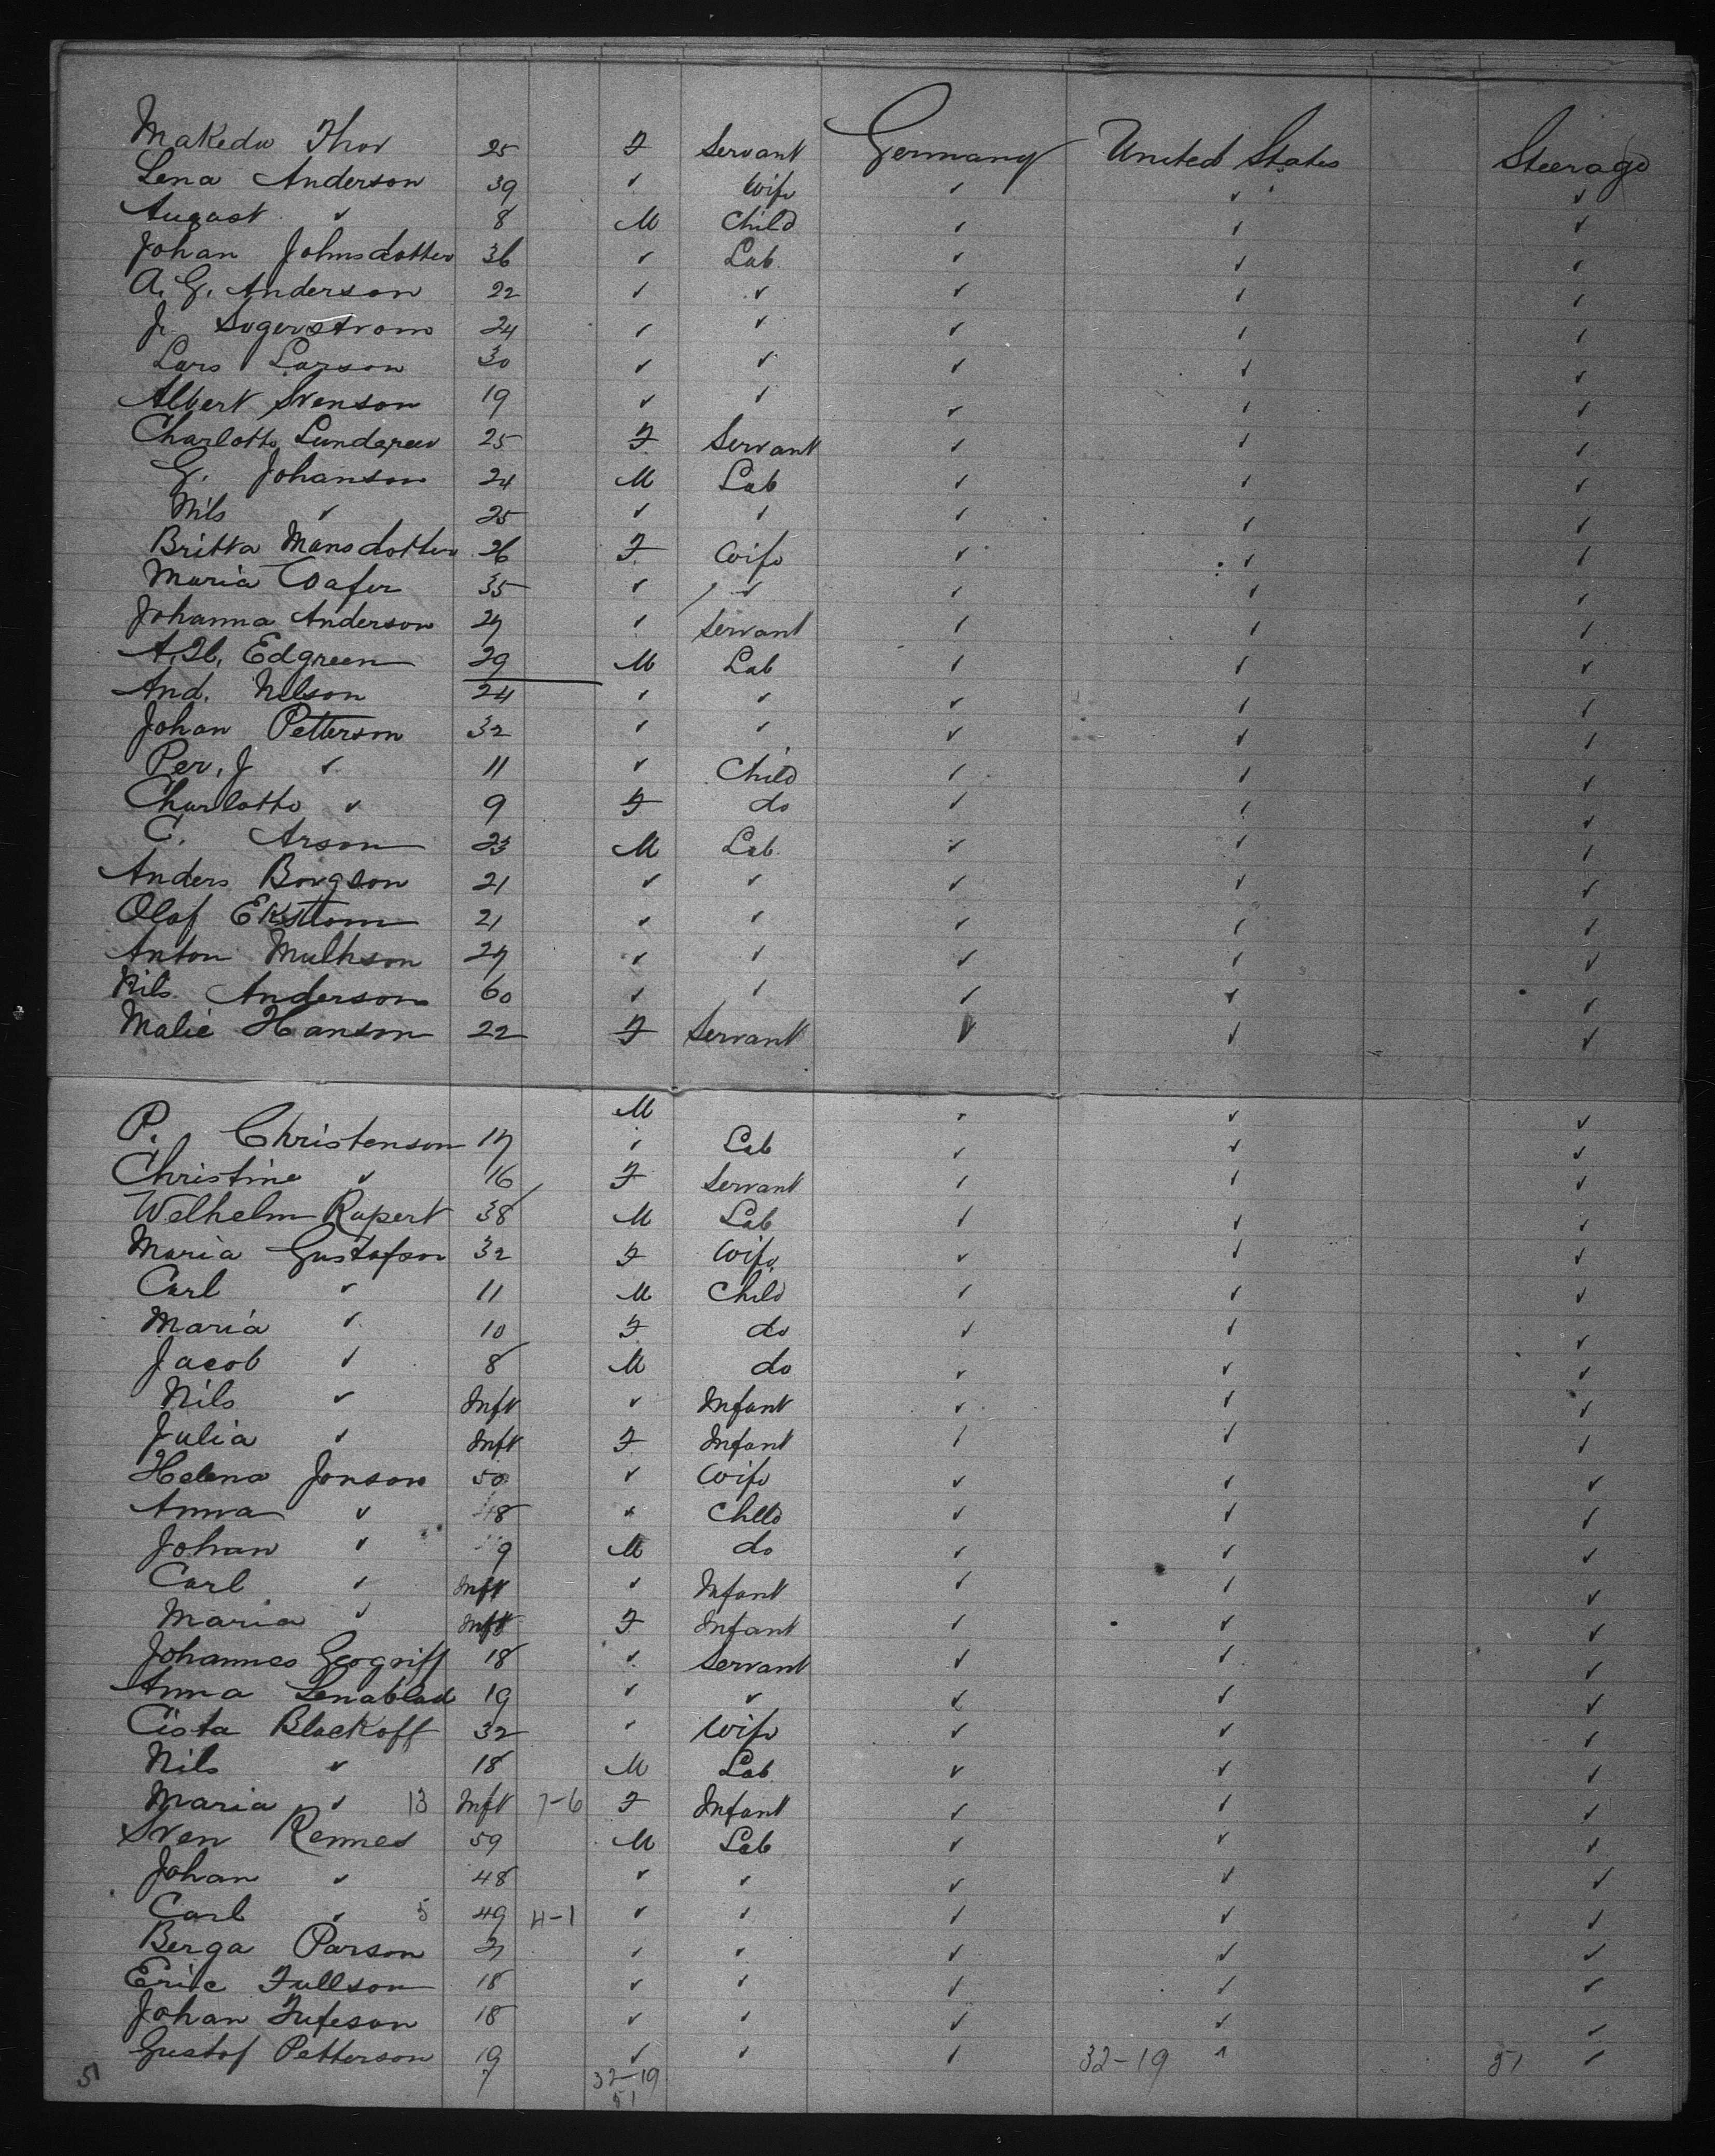 Makedo Thor 25 F Servant Germany United States Steerage
Lena Anderson 39 ✓ Wife ✓ ✓ ✓
August ✓ 8 M Child ✓ ✓ ✓
Johan Johnsdotter 36 ✓ Lab. ✓ ✓ ✓
A. G. Anderson 22 ✓ ✓ ✓ ✓ ✓
J. Sogerstrom 24 ✓ ✓ ✓ ✓ ✓
Lars Larson 30 ✓ ✓ ✓ ✓ ✓
Albert Svenson 19 ✓ ✓ ✓ ✓ ✓
Charlotte Lundgren 25 F Servant ✓ ✓ ✓
G. Johanson 24 M Lab ✓ ✓ ✓
Nils ✓ 25 ✓ ✓ ✓ ✓ ✓
Britta Mansdotter 26 F Wife ✓ ✓ ✓
Maria 35 ✓ ✓ ✓ ✓ ✓
Johanna Anderson 27 ✓ Servant ✓ ✓ ✓
A. H. Edgreen 29 M Lab ✓ ✓ ✓
And. Nelson 24 ✓ ✓ ✓ ✓ ✓
Johan Petterson 32 ✓ ✓ ✓ ✓ ✓
Per. J ✓ 11 ✓ Child ✓ ✓ ✓
Charlotte ✓ 9 F do ✓ ✓ ✓
C. Arson 23 M Lab. ✓ ✓ ✓
Anders Borgson 21 ✓ ✓ ✓ ✓ ✓
Olof Ekstrom 21 ✓ ✓ ✓ ✓ ✓
Anton Mulhson 27 ✓ ✓ ✓ ✓ ✓
Nils Anderson 60 ✓ ✓ ✓ ✓ ✓
Malie Hanson 22 F Servant ✓ ✓ ✓
M ✓ ✓ ✓
P. Christenson 17 ✓ Lab ✓ ✓ ✓
Christine ✓ 16 F Servant ✓ ✓ ✓
Welhelm Rupert 38 M Lab ✓ ✓ ✓
Maria Gustafson 32 F Wife ✓ ✓ ✓
Carl ✓ 11 M Child ✓ ✓ ✓
Maria ✓ 10 F do ✓ ✓ ✓
Jacob ✓ 8 M do ✓ ✓ ✓
Nils ✓ Inft ✓ Infant ✓ ✓ ✓
Julia ✓ Inft F Infant ✓ ✓ ✓
Helena Jonson 50 ✓ Wife ✓ ✓ ✓
Anna ✓ 18 ✓ Child ✓ ✓ ✓
Johan ✓ 9 M do ✓ ✓ ✓
Carl ✓ Inft ✓ Infant ✓ ✓ ✓
Maria ✓ Inft F Infant ✓ ✓ ✓
Johannes 18 ✓ Servant ✓ ✓ ✓
Anna Lenablad 19 ✓ ✓ ✓ ✓ ✓
Cista Blackoff 32 ✓ Wife ✓ ✓ ✓
Nils ✓ 18 M Lab ✓ ✓ ✓
Maria ✓ 13 Inft 7-6 F Infant ✓ ✓ ✓
Sven Rennes 59 M Lab ✓ ✓ ✓
Johan ✓ 48 ✓ ✓ ✓ ✓ ✓
Carl ✓ 5 49 4-1 ✓ ✓ ✓ ✓ ✓
Berga Parson ✓ ✓ ✓ ✓ ✓
Eric Fullson 18 ✓ ✓ ✓ ✓ ✓
Johan 18 ✓ ✓ ✓ ✓ ✓
Gustof Petterson 19 ✓ ✓ ✓ 32-19 ✓ 51 ✓
51 7 32-19
51